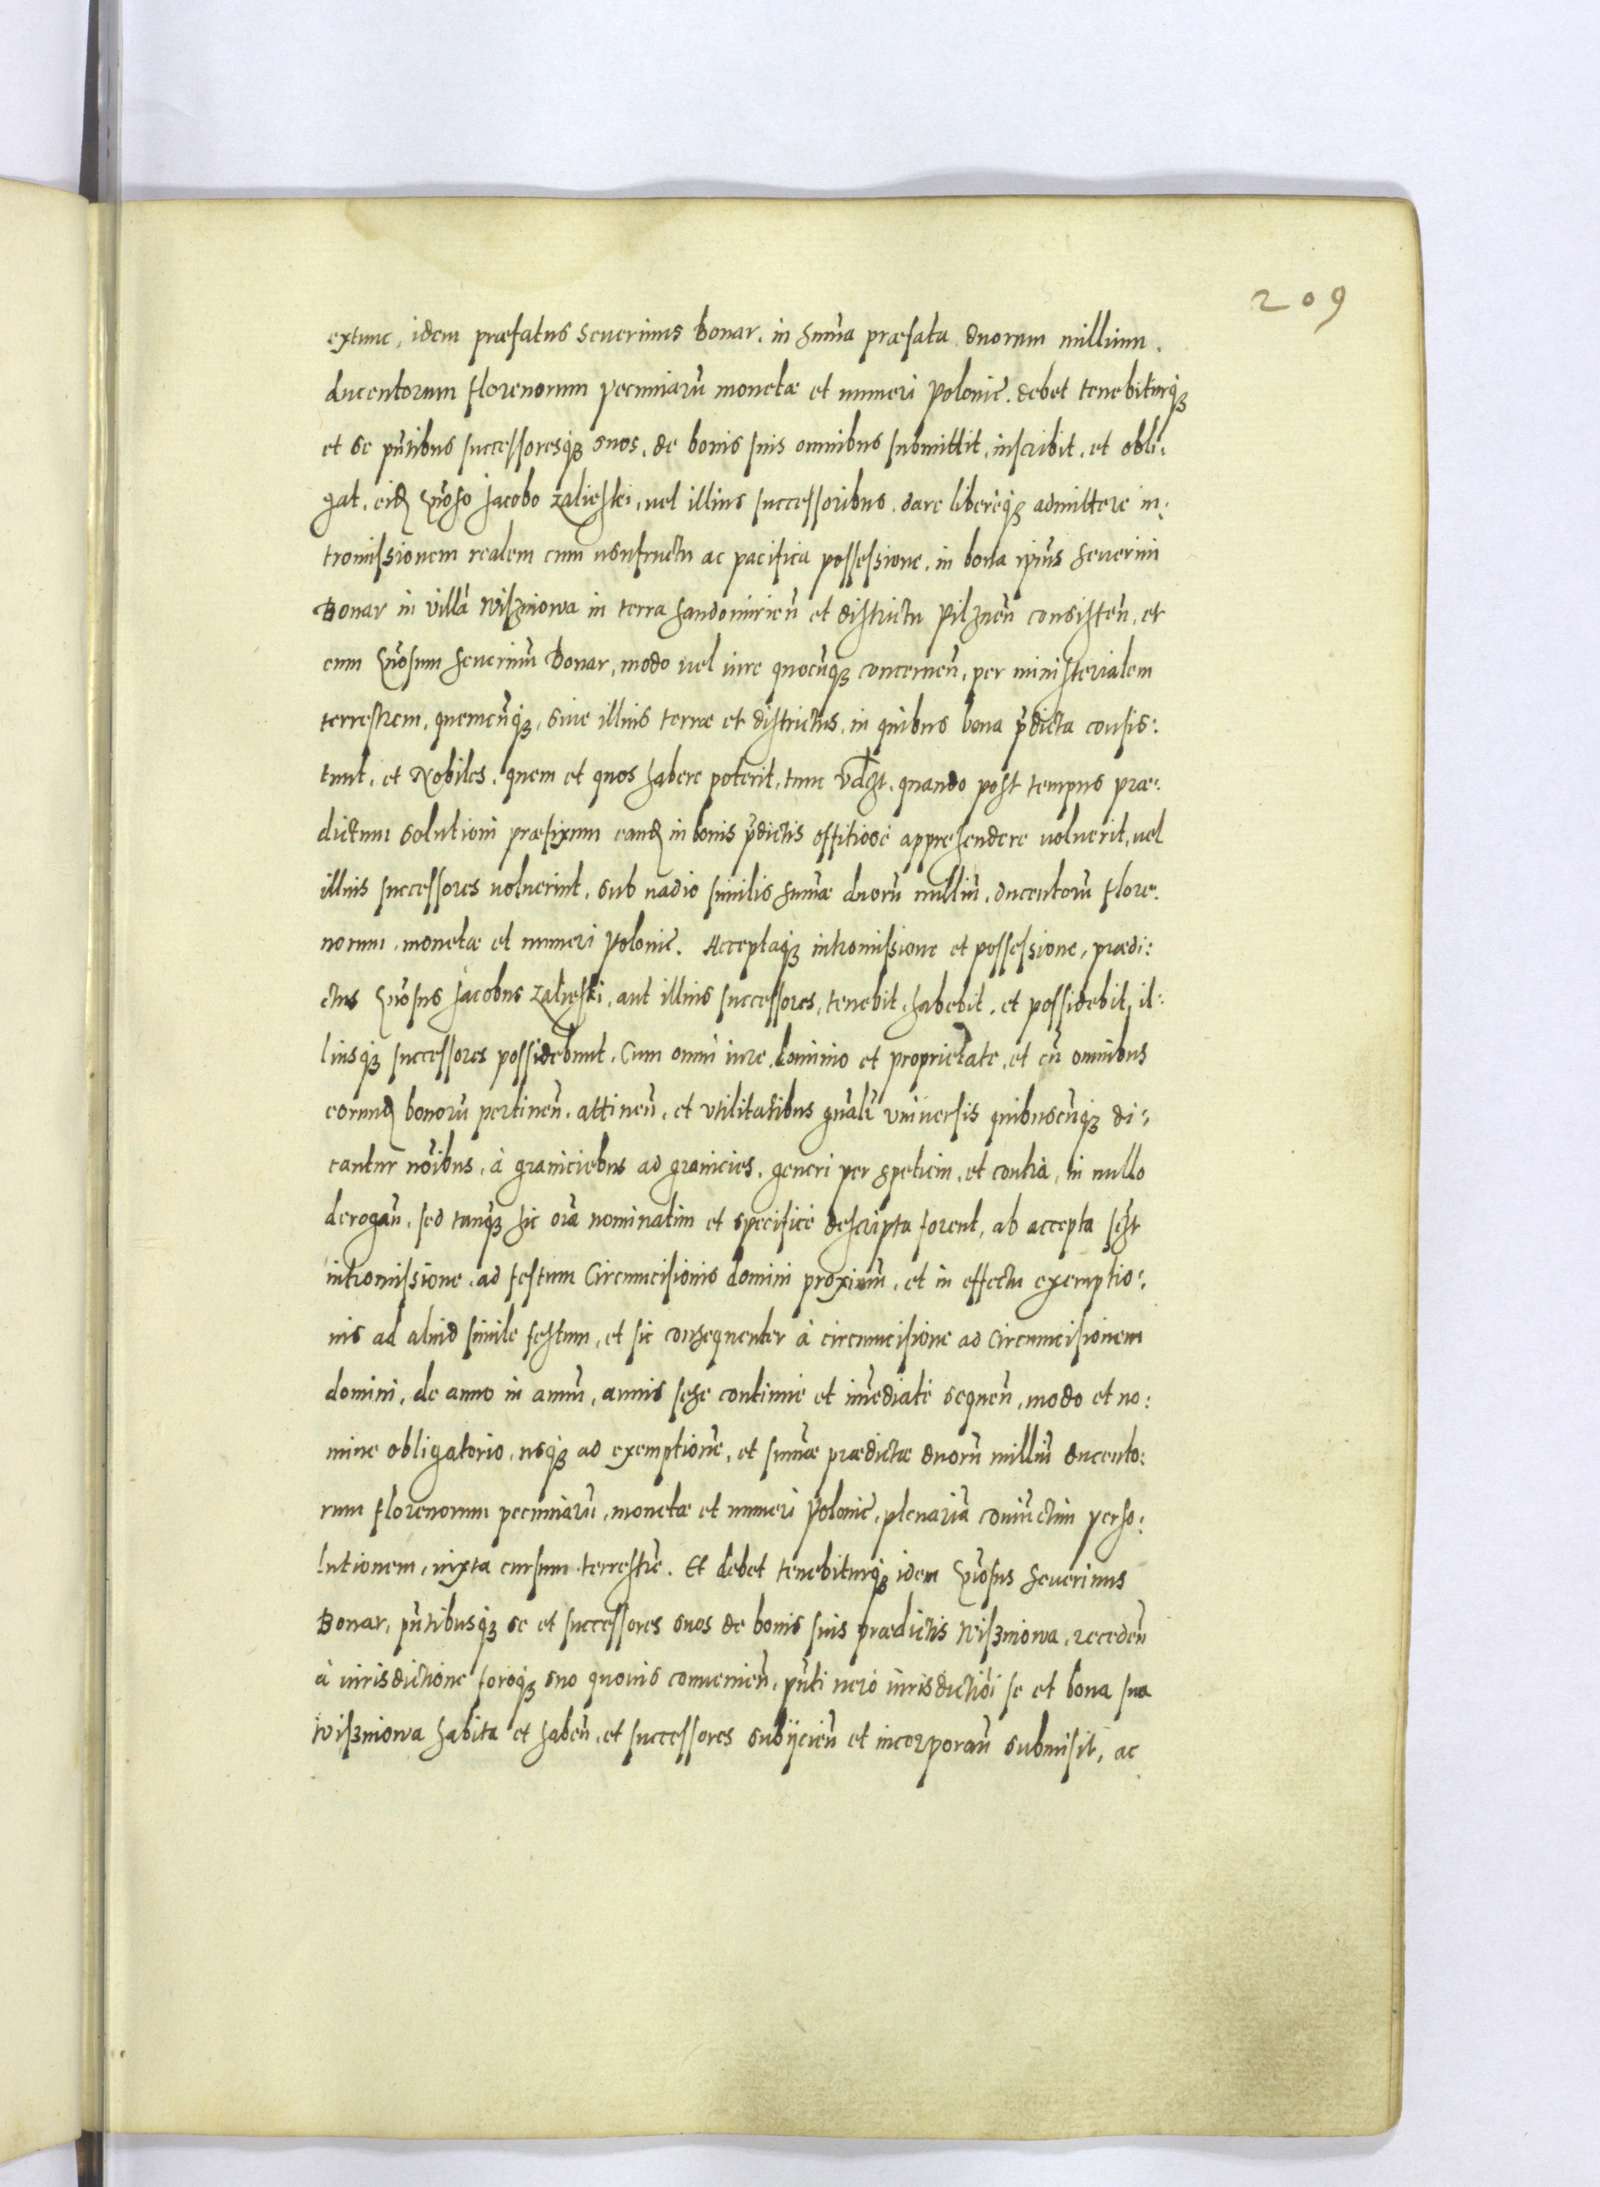 209
extunc, idem præfatus Seuerinus Bonar, in Sum̃a præfata duorum millium,
ducentorum florenorum pecuniarũ monetæ et numeri Polonic̃. debet tenebiturq;
et se pñtibus successoresq; suos, de bonis suis omnibus submittit, inscribit, et obli:
gat, eidẽ Gñoso Jacobo Zalieski, uel illius successoribus, dare libereq; admittere in:
tromissionem realem cum usufructu ac pacifica possessione, in bona ipius Seuerini
Bonar in villa Wiszniowa in terra Sandomirieñ et districtu Pilzneñ consisteñ, et
eum Gñosum Seuerinũ Bonar, modo uel iure quocũq; concerneñ, per ministerialem
terrestrem, quemcũq;, siue illius terræ et districtus, in quibus bona p̃dicta consis:
tunt, et Nobiles, quem et quos habere poterit, tunc vdzt, quando post tempus præ:
dictum solutioni præfixum eandẽ in bonis p̃dictis offitiosè apprehendere uoluerit, uel
illius successores uoluerint, sub uadio similis sum̃æ duorũ milliũ, ducentorũ flore:
norum, monetæ et numeri Polonic̃. Acceptaq; intromissione et possessione, prædi:
ctus Gñosus Jacobus Zalieski, aut illius successores, tenebit, habebit, et possidebit, il:
liusq; successores possidebunt, Cum omni iure dominio et proprietate, et cũ omnibus
eorundẽ bonorũ pertineñ, attineñ, et vtilitatibus gñalĩ vniuersis quibuscũq; di:
cantur nõibus, à graniciebus ad granicies, generi per spetiem, et contrà, in nullo
derogañ, sed tanq̃ hic oĩa nominatim et specificè descripta forent, ab accepta sczt
intromissione, ad festum Circumcisionis domini proximũ, et in effectu exemptio:
nis ad aliud simile festum, et sic consequenter à circumcisione ad Circumcisionem
domini, de anno in annũ, annis sese continuè et im̃ediatè sequeñ, modo et no:
mine obligatorio, usq; ad exemptionẽ, et sum̃æ prædictæ duorũ milliũ ducento:
rum florenorum pecuniarũ, monetæ et numeri Polonic̃, plenariã coniunctim perso:
lutionem, iuxta cursum terrestrẽ. Et debet tenebiturq; idem Gñosus Seuerinus
Bonar, pñtibusq; se et successores suos de bonis suis prædictis Wiszniowa, recedeñ
à iurisdictione foroq; suo quouis conuenieñ, pñti uerò iurisdictiõi se et bona sua
Wiszniowa habita et habeñ, et successores subijcieñ et incorporañ submisit, ac